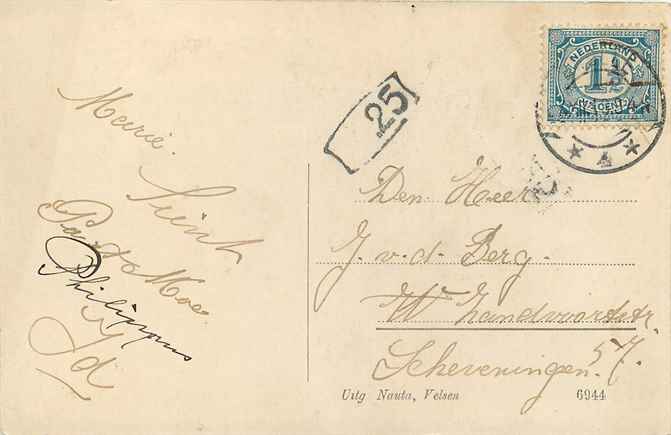 Marie.
Sint
Pa & Moe.
Philippus
Id
25
NEDERLAND
1½
CENT
Den Heer
J. v. d. Berg.
W Zandvoortstr.
57.
Scheveningen.
Uitg Nauta, Velsen
6944